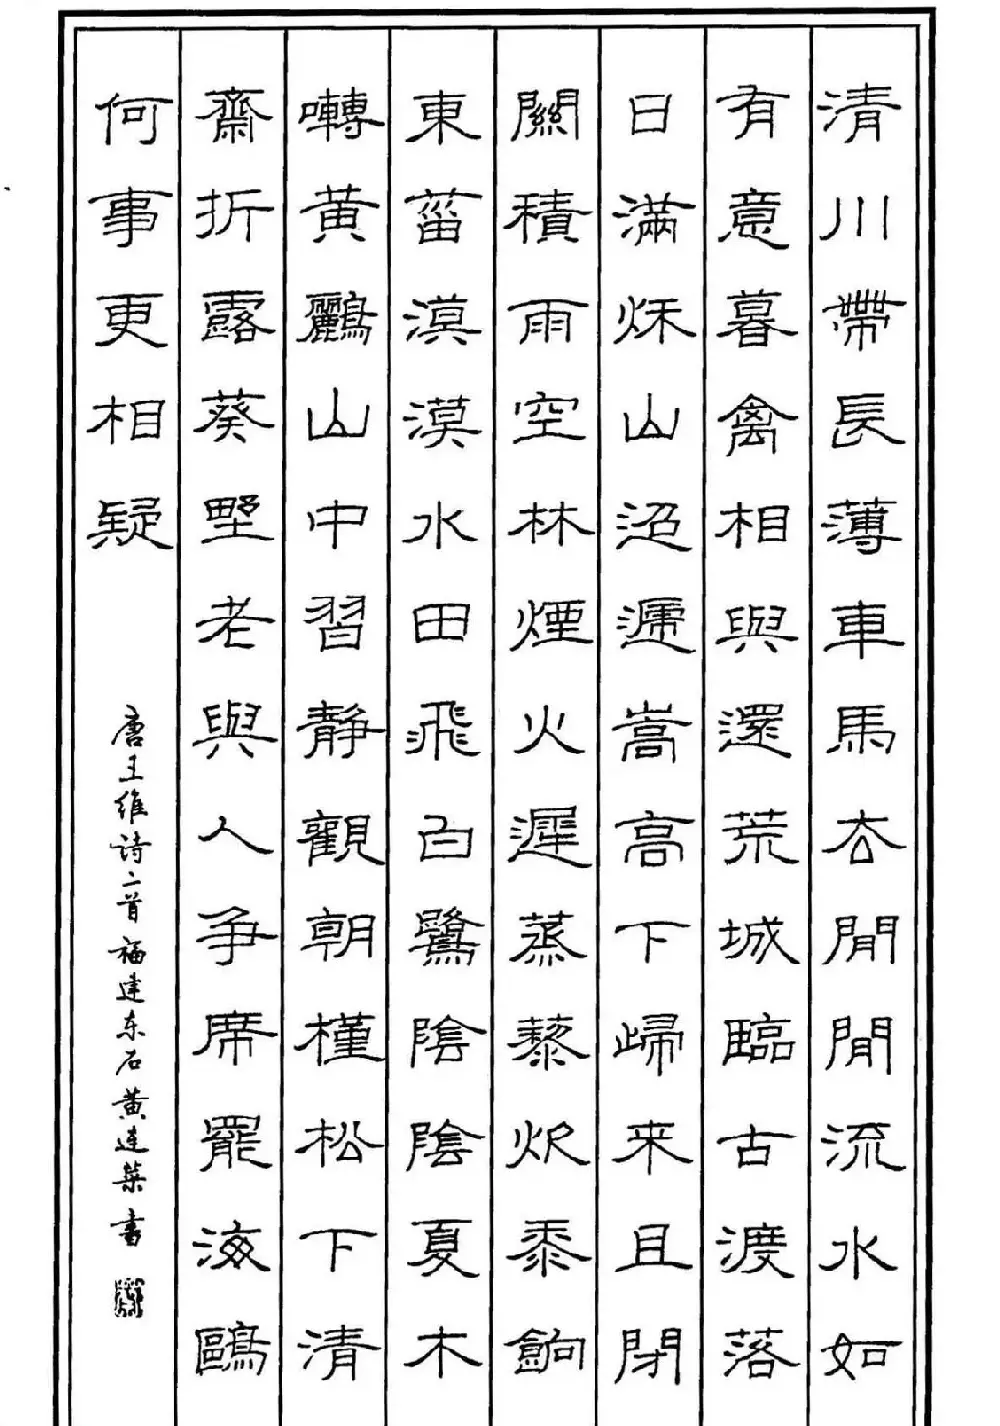 清川帶長薄車馬去閒閒流水如
有意暮禽相與還荒城臨古渡落
日滿秌山迢遞嵩高下歸来且閉
關積雨空林煙火遲蒸藜炊黍餉
東菑漠漠水田飛白鷺陰陰夏木
囀黄鸝山中習静觀朝槿松下清
齋折露葵野老與人争席罷海鷗
何事更相疑
唐王维诗二首 福建东石黄连葉書